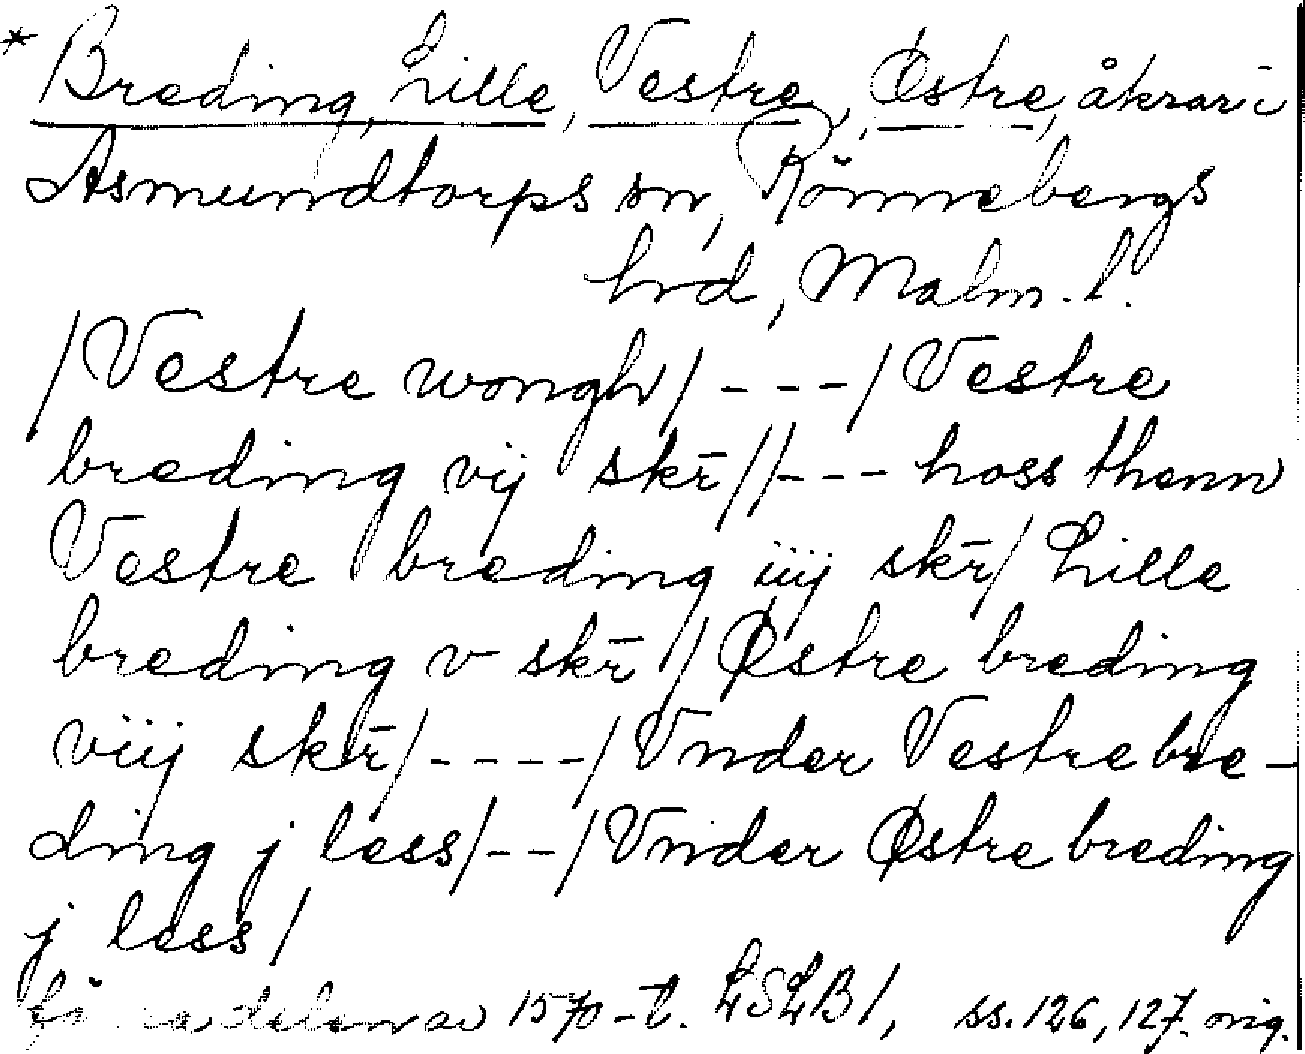 * Breding, Lille, Vestre, Østre, åkrar i
Asmundtorps sn, Rönnebergs
hrd, Malm. l.
/Vestre wongh/ - - - / Vestre
breding vij skr̄ // - - - hoss thenn
Vestre breding iiij skr̄/ Lille
breding v skr̄ // Østre breding
viij skr̄/ - - - - / Vnder Vestre bre-
ding j less/ - - / Vnder Østre breding
j less/
delen av 1570-t. LSLB 1, ss. 126, 127. orig.